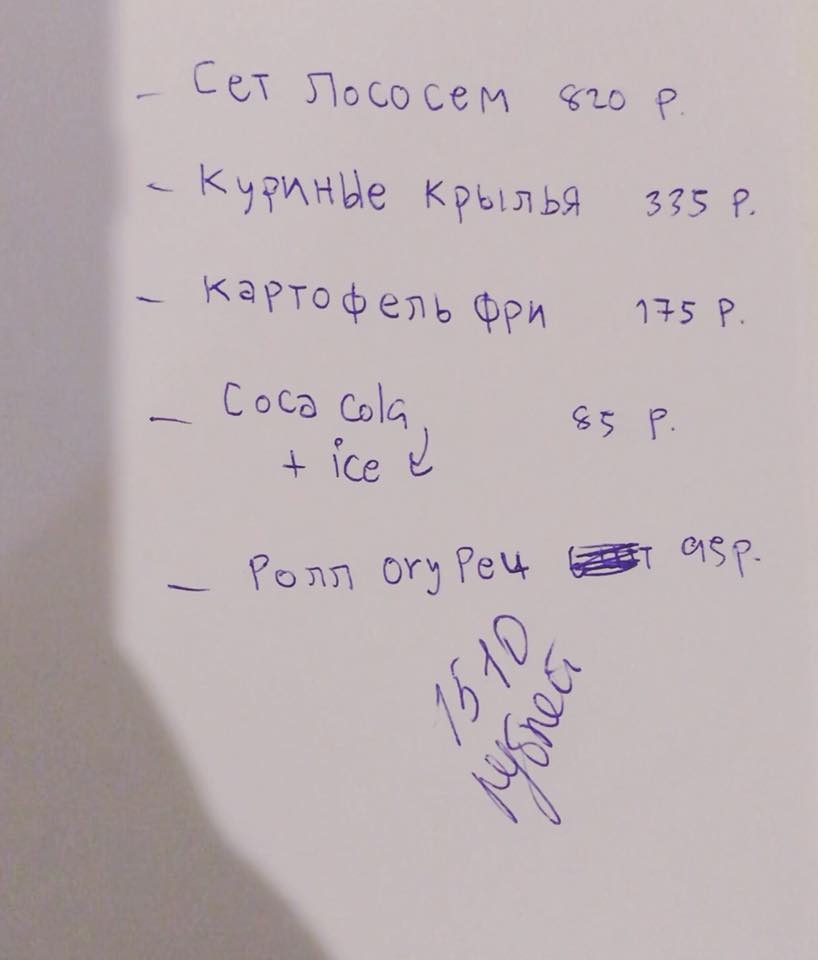 — Сет Лососем 820 р.
— Куриные крылья 335 р.
— Картофель фри 175 р.
— Coca Cola 85 р.
+ ice
— Ролл огурец 95 р.
1510
рублей